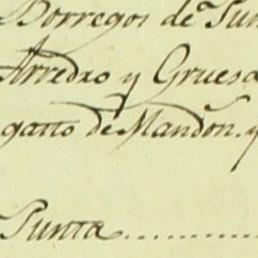 Borregos de Pun
Arredro y Gruesa
gatto de Mandon. y
Punta..............